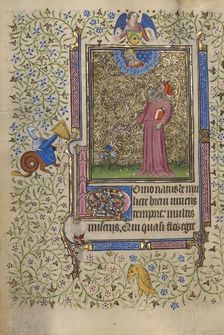 Homo natus de mu
liere breui uiuens
tempore: multis
miserijs. Qui quasi flos egre